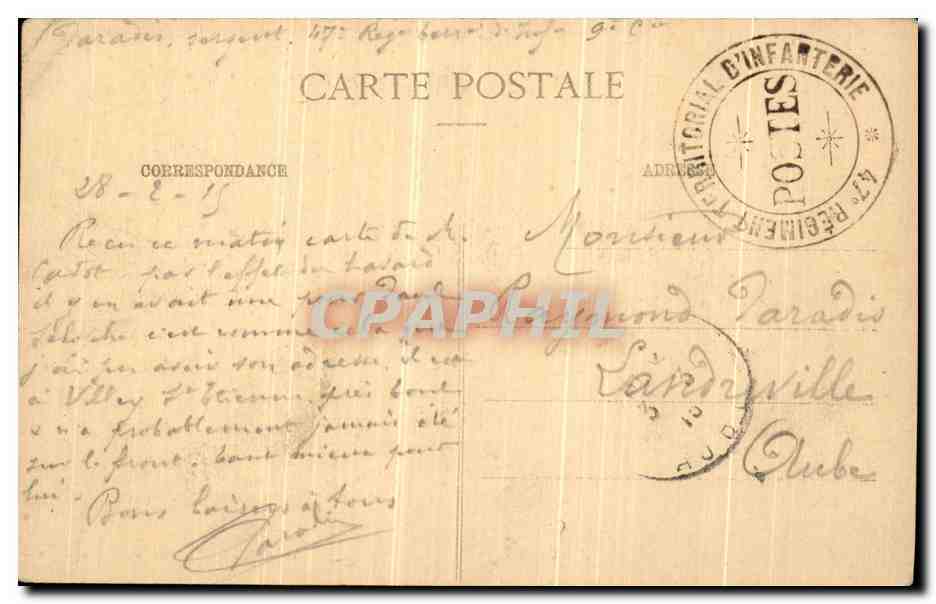 Paradis, sergent, 47e Regt terral d'Infie 9e Cie
CARTE POSTALE
CORRESPONDANCE
ADRESSE
47e RÉGIMENT TERRITORIAL D'INFANTERIE *
POSTES
28 - 2 - 15
Reçu ce matin carte de M.
Cadot par l'effet du hasard
il y en avait une pour Paul
c'est comme cela que
j'ai pu avoir son adresse, il est
à Villey St Etienne près
n'a probablement jamais été
sur le front. tant mieux pour
lui.
Bons baisers à tous
Paradis
Monsieur
Raymond Paradis
Landreville
Aube
3
15
AUBE
CPAPHIL